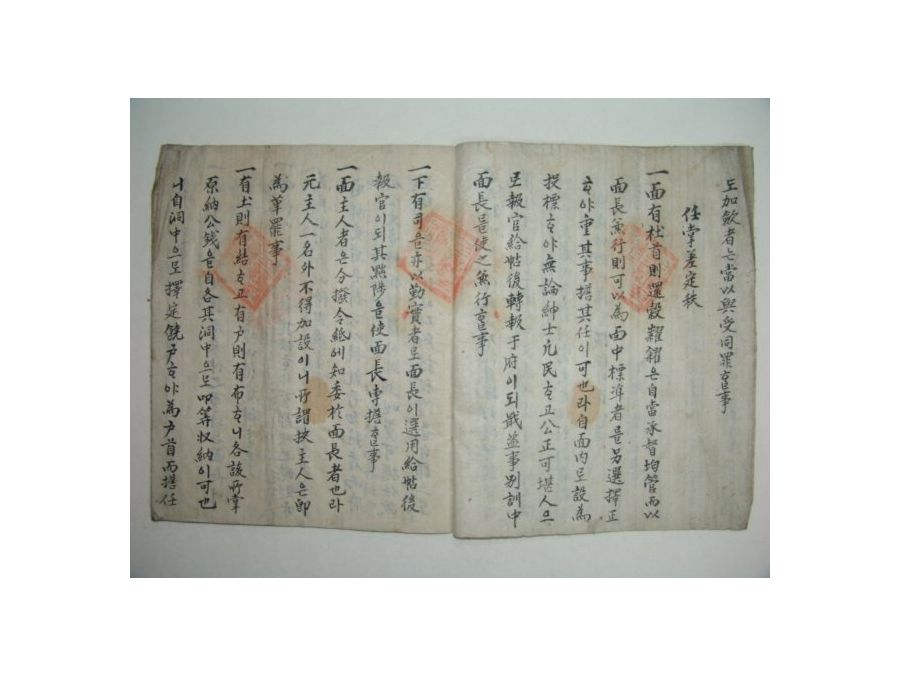 도加斂者는當以與受同罪홀事
任掌差定秩
一面有杖首則還穀糶糴은自當承督均管而以
面長無行則可以為面中標準者를另選擇正
하야重其事擔其任이可也라自面內로設為
投標하야無論紳士凡民하고公正可堪人으
로報官給帖後轉報于府이되戡簿事別訓中
面長를使之無行홀事
一下有司을亦以勤實者로面長이選用給帖後
報官이되其黜陟을使面長專擔홀事
一面主人者은分撥令紙에知委於面長者也라
元主人一名外不得加設이니所謂挾主人은卽
為革罷事
一有土則有結하고有戶則有布하니各該所掌
原納公錢을自各其洞中으로趂等收納이可也
니自洞中으로擇定饒戶하야為戶首而擔任